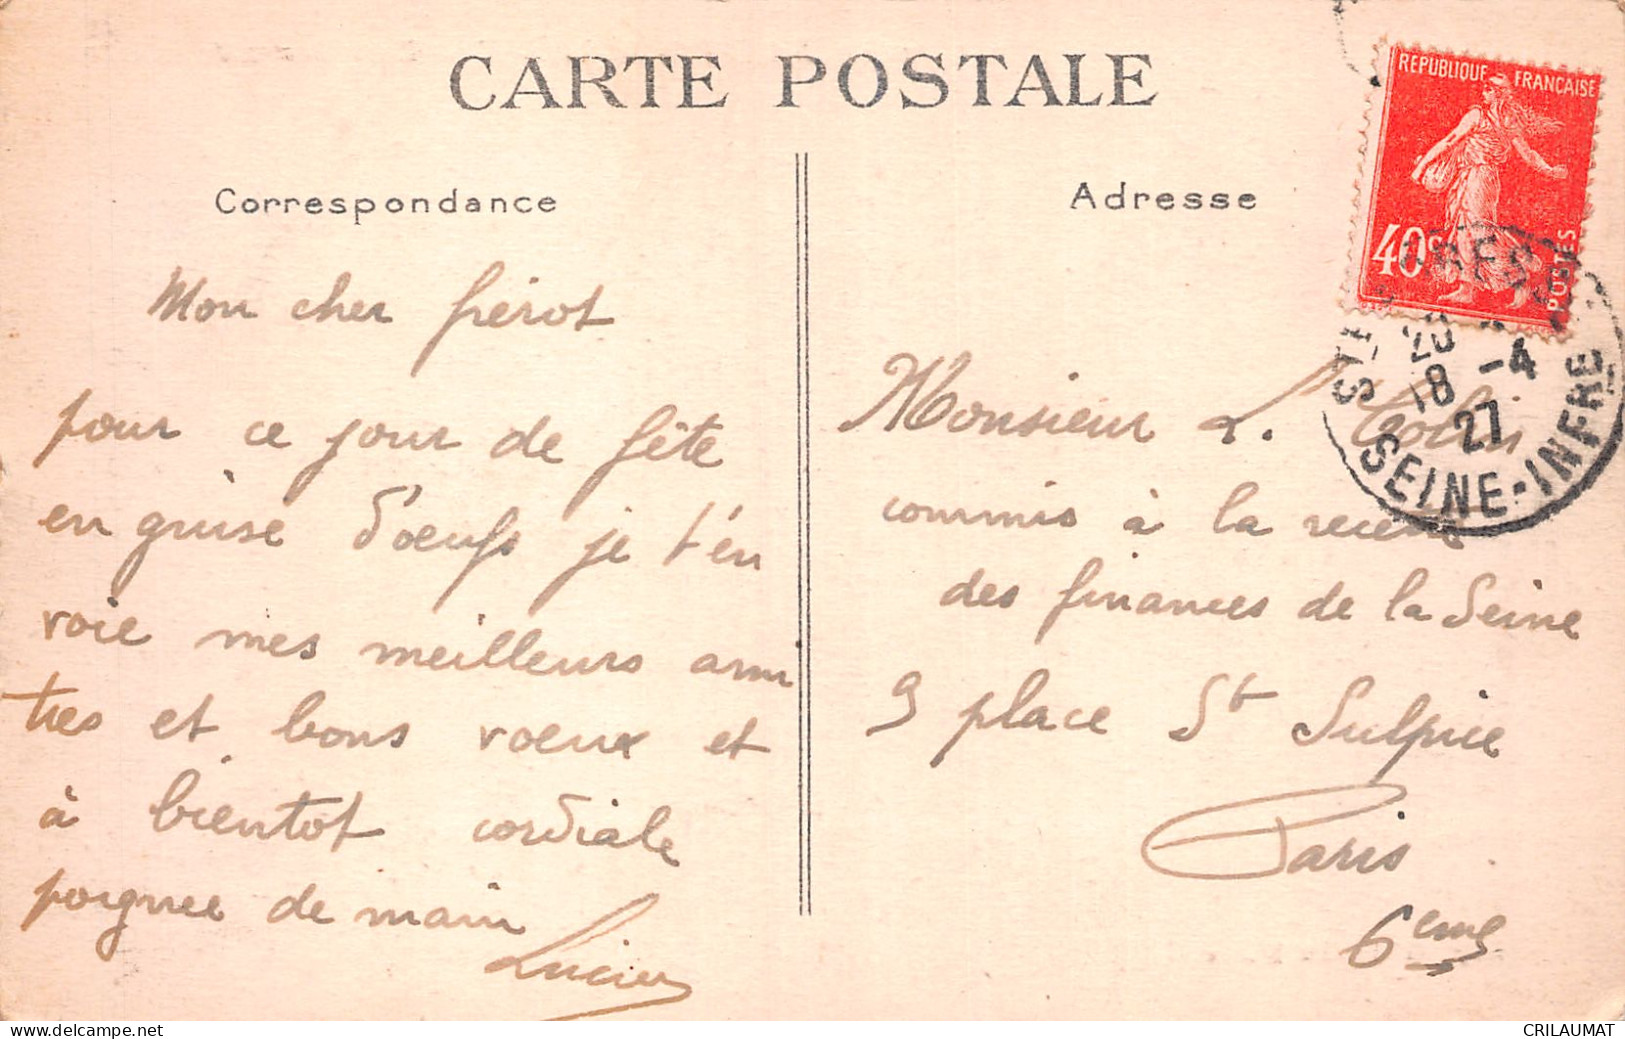 CARTE POSTALE
Correspondance
Mon cher frérot
pour ce jour de fête
en guise d'oeufs je t'en
voie mes meilleurs ami
tiés et bons voeux et
à bientot cordiale
poignee de main
Lucien
Adresse
REPUBLIQUE FRANCAISE
40c
POSTES
STE ADRESSE
20
18 -4
27
SEINE-INFRE
Monsieur L. Colin
commis à la recette
des finances de la Seine
9 place St Sulpice
Paris
6eme
www.delcampe.net
CRILAUMAT